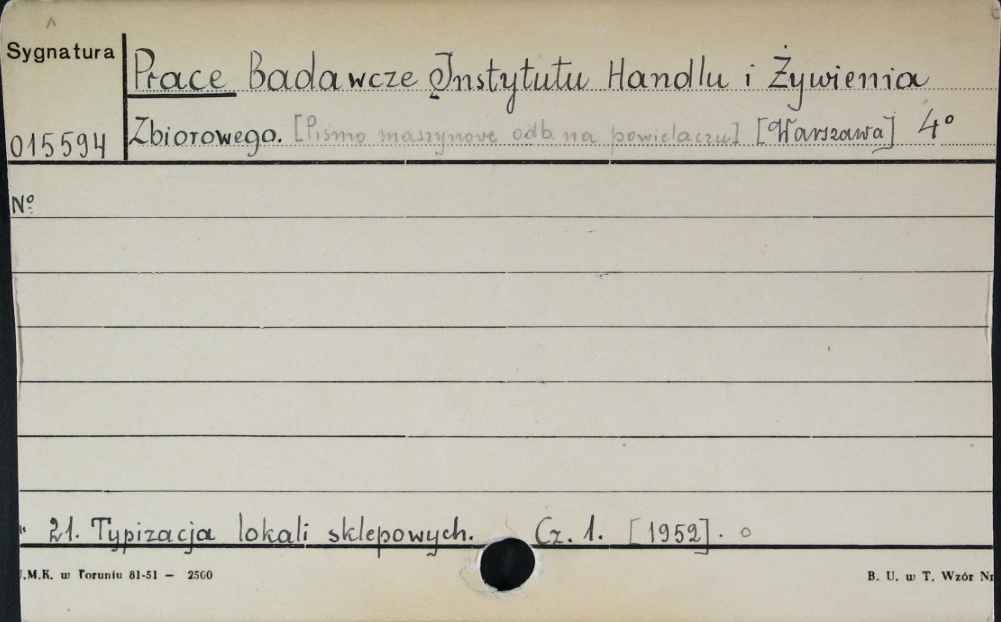 Sygnatura
Prace Badawcze Instytutu Handlu i Żywienia
015594
Zbiorowego. [Pismo maszynowe odb. na powielaczu] [Warszawa] 4°
Nº
" 21. Typizacja lokali sklepowych. Cz. 1. [1952]. o
.M.K. w Toruniu 81-51 — 2500
B. U. w T. Wzór Nr